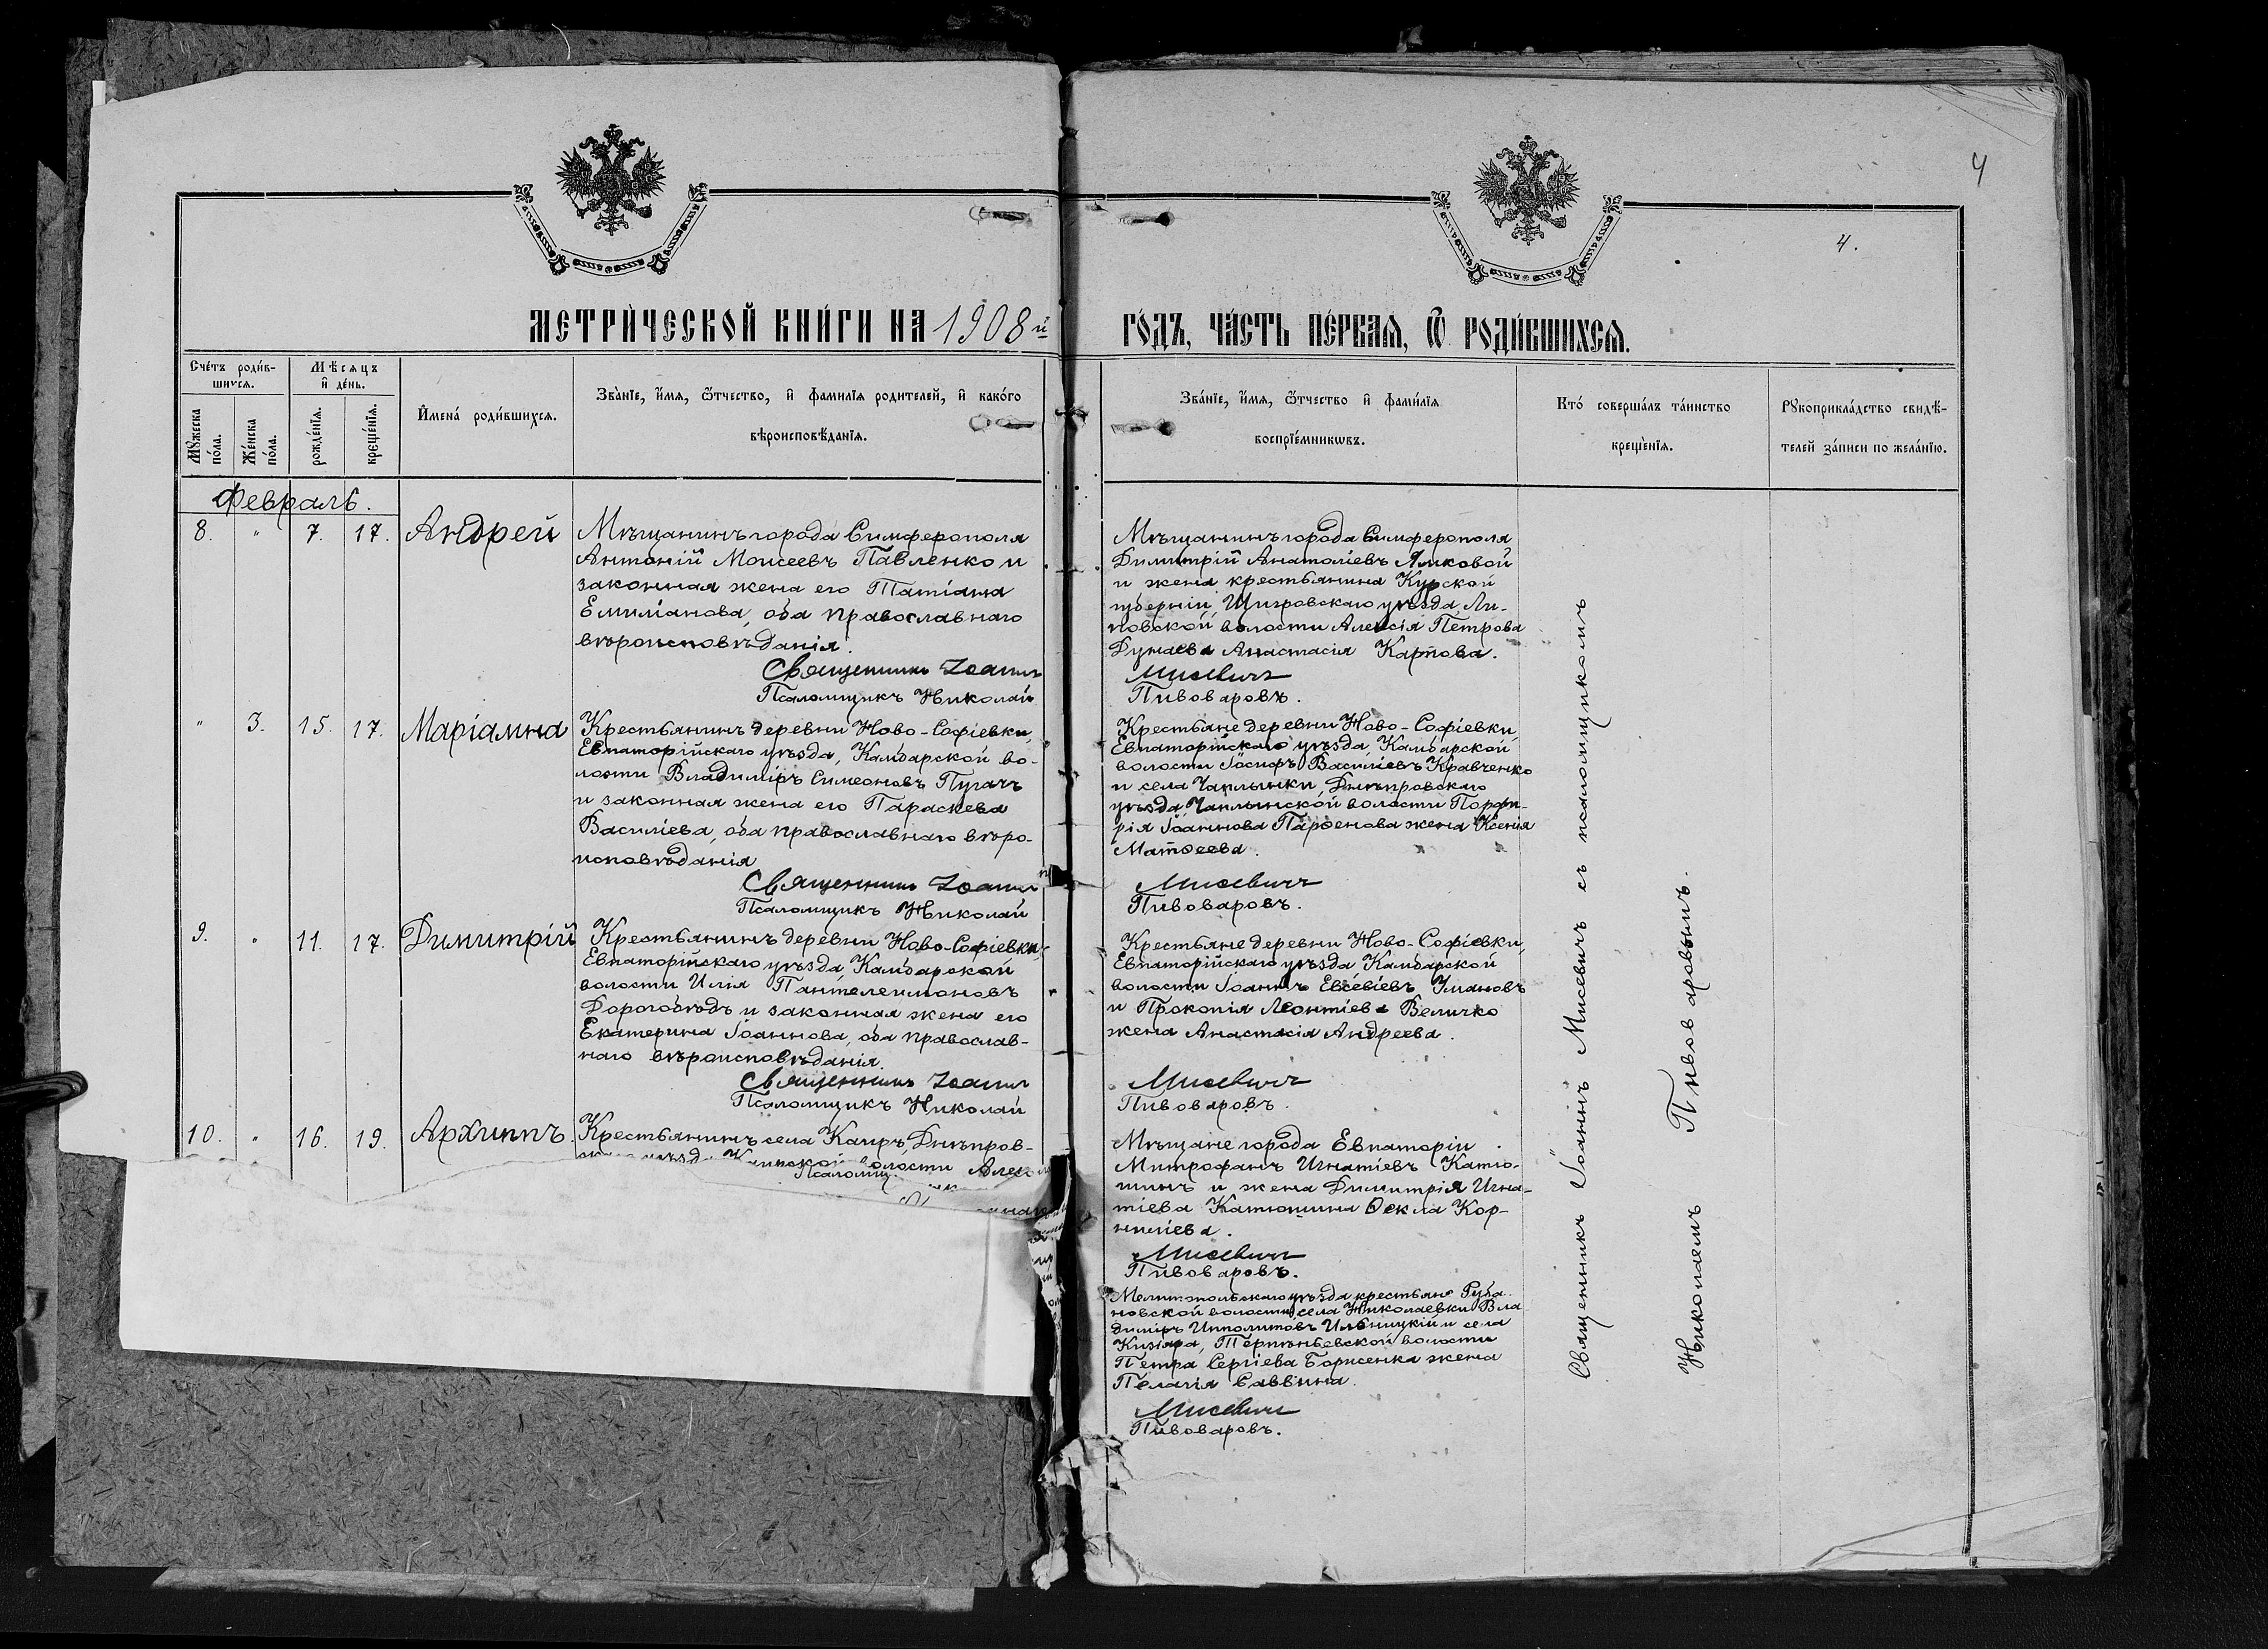 4
4.
МЕТРИ́ЧЕСКОЙ КНИ́ГИ НА 1908 й
ГО́ДЪ, ЧА́СТЬ ПЕ́РВАѦ, Ѿ РОДИ́ВШИХСѦ.
Сче́тъ роди́в-
шихсѧ.
Мѣсѧцъ
и де́нь.
Мꙋжеска
по́ла.
Же́нска
по́ла.
рожде́нїѧ.
креще́нїѧ.
Имена́ роди́вшихсѧ.
Зва́нїе, и́мѧ, ѻ҆́тчество, и фамилїѧ родителей, и како́го
вѣроисповѣ́данїѧ.
Зва́нїе, и́мѧ, ѻ҆́тчество и фами́лїѧ
воспрїе́мникѡвъ.
Кто́ соверша́лъ та́инство
креще́нїѧ.
Рꙋкоприкла́дство свидѣ́-
телей за́писи по жела́нїю.
Февраль.
8. " 7. 17. Андрей
Мѣщанинъ города Симферополя
Антоній Моисеевъ Павленко и
законная жена его Татіана
Емиліанова, оба православнаго
вѣроисповѣданія.
Священникъ Іоаннъ
Псаломщикъ Николай
Мѣщанинъ города Симферополя
Димитрій Анатоліевъ Яиковой
и жена крестьянина Курской
губерніи, Щигровскаго уѣзда, Ли-
повской волости Алексія Петрова
Дунаева Анастасія Карпова.
Мисевичъ
Пивоваровъ.
" 3. 15. 17. Маріамна
Крестьянинъ деревни Ново-Софіевки,
Евпаторійскаго уѣзда, Камбарской во-
лости Владиміръ Симеоновъ Пугачъ
и законная жена его Параскева
Василіева, оба православнаго вѣро-
исповѣданія
Священникъ Іоаннъ
Псаломщикъ Николай
Крестьяне деревни Ново-Софіевки,
Евпаторійскаго уѣзда, Камбарской
волости Іосифъ Василіевъ Кравченко
и села Чаплынки, Днѣпровскаго
уѣзда, Чаплынской волости Порфи-
рія Іоаннова Парѳенова жена Ксенія
Матѳеева.
Мисевичъ
Пивоваровъ.
9. " 11. 17. Димитрій
Крестьянинъ деревни Ново-Софіевки,
Евпаторійскаго уѣзда, Камбарской
волости Илія Пантелеимоновъ
Дорогобѣдъ и законная жена его
Екатерина Іоаннова, оба православ-
наго вѣроисповѣданія.
Священникъ Іоаннъ
Псаломщикъ Николай
Крестьяне деревни Ново-Софіевки,
Евпаторійскаго уѣзда, Камбарской
волости Іоаннъ Евсевіевъ Умановъ
и Прокопія Леонтіева Величко
жена Анастасія Андреева.
Мисевичъ
Пивоваровъ.
10. " 16. 19. Архиппъ.
Крестьянинъ села Каиръ, Днѣпров-
волости
Мѣщане города Евпаторіи
Митрофанъ Игнатіевъ Катю-
шинъ и жена Димитрія Игна-
тіева Катюшина Ѳекла Кор-
ниліева.
Мисевичъ
Пивоваровъ.
Мелитопольскаго уѣзда крестьяне Руба-
новской волости, села Николаевки Вла
диміръ Ипполитовъ Ильницкій и села
Кизіяра, Терпѣньевской волости
Петра Сергіева Борисенка жена
Пелагія Саввина.
Мисевичъ
Пивоваровъ.
Священникъ Іоаннъ Мисевичъ съ псаломщикомъ
Николаемъ Пивоваровымъ.